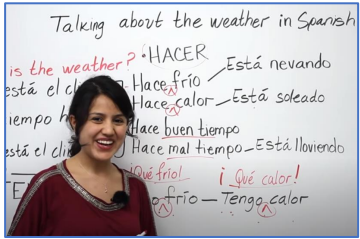 Talking about the weather in Spanish
is the weather? HACER
está el cli Hace frío Está nevando
iempo h Hace calor - Está soleado
Hace buen tiempo
está el cli Hace mal tiempo - Está lloviendo
¡Qué frío! ¡Qué calor!
frío - Tengo calor